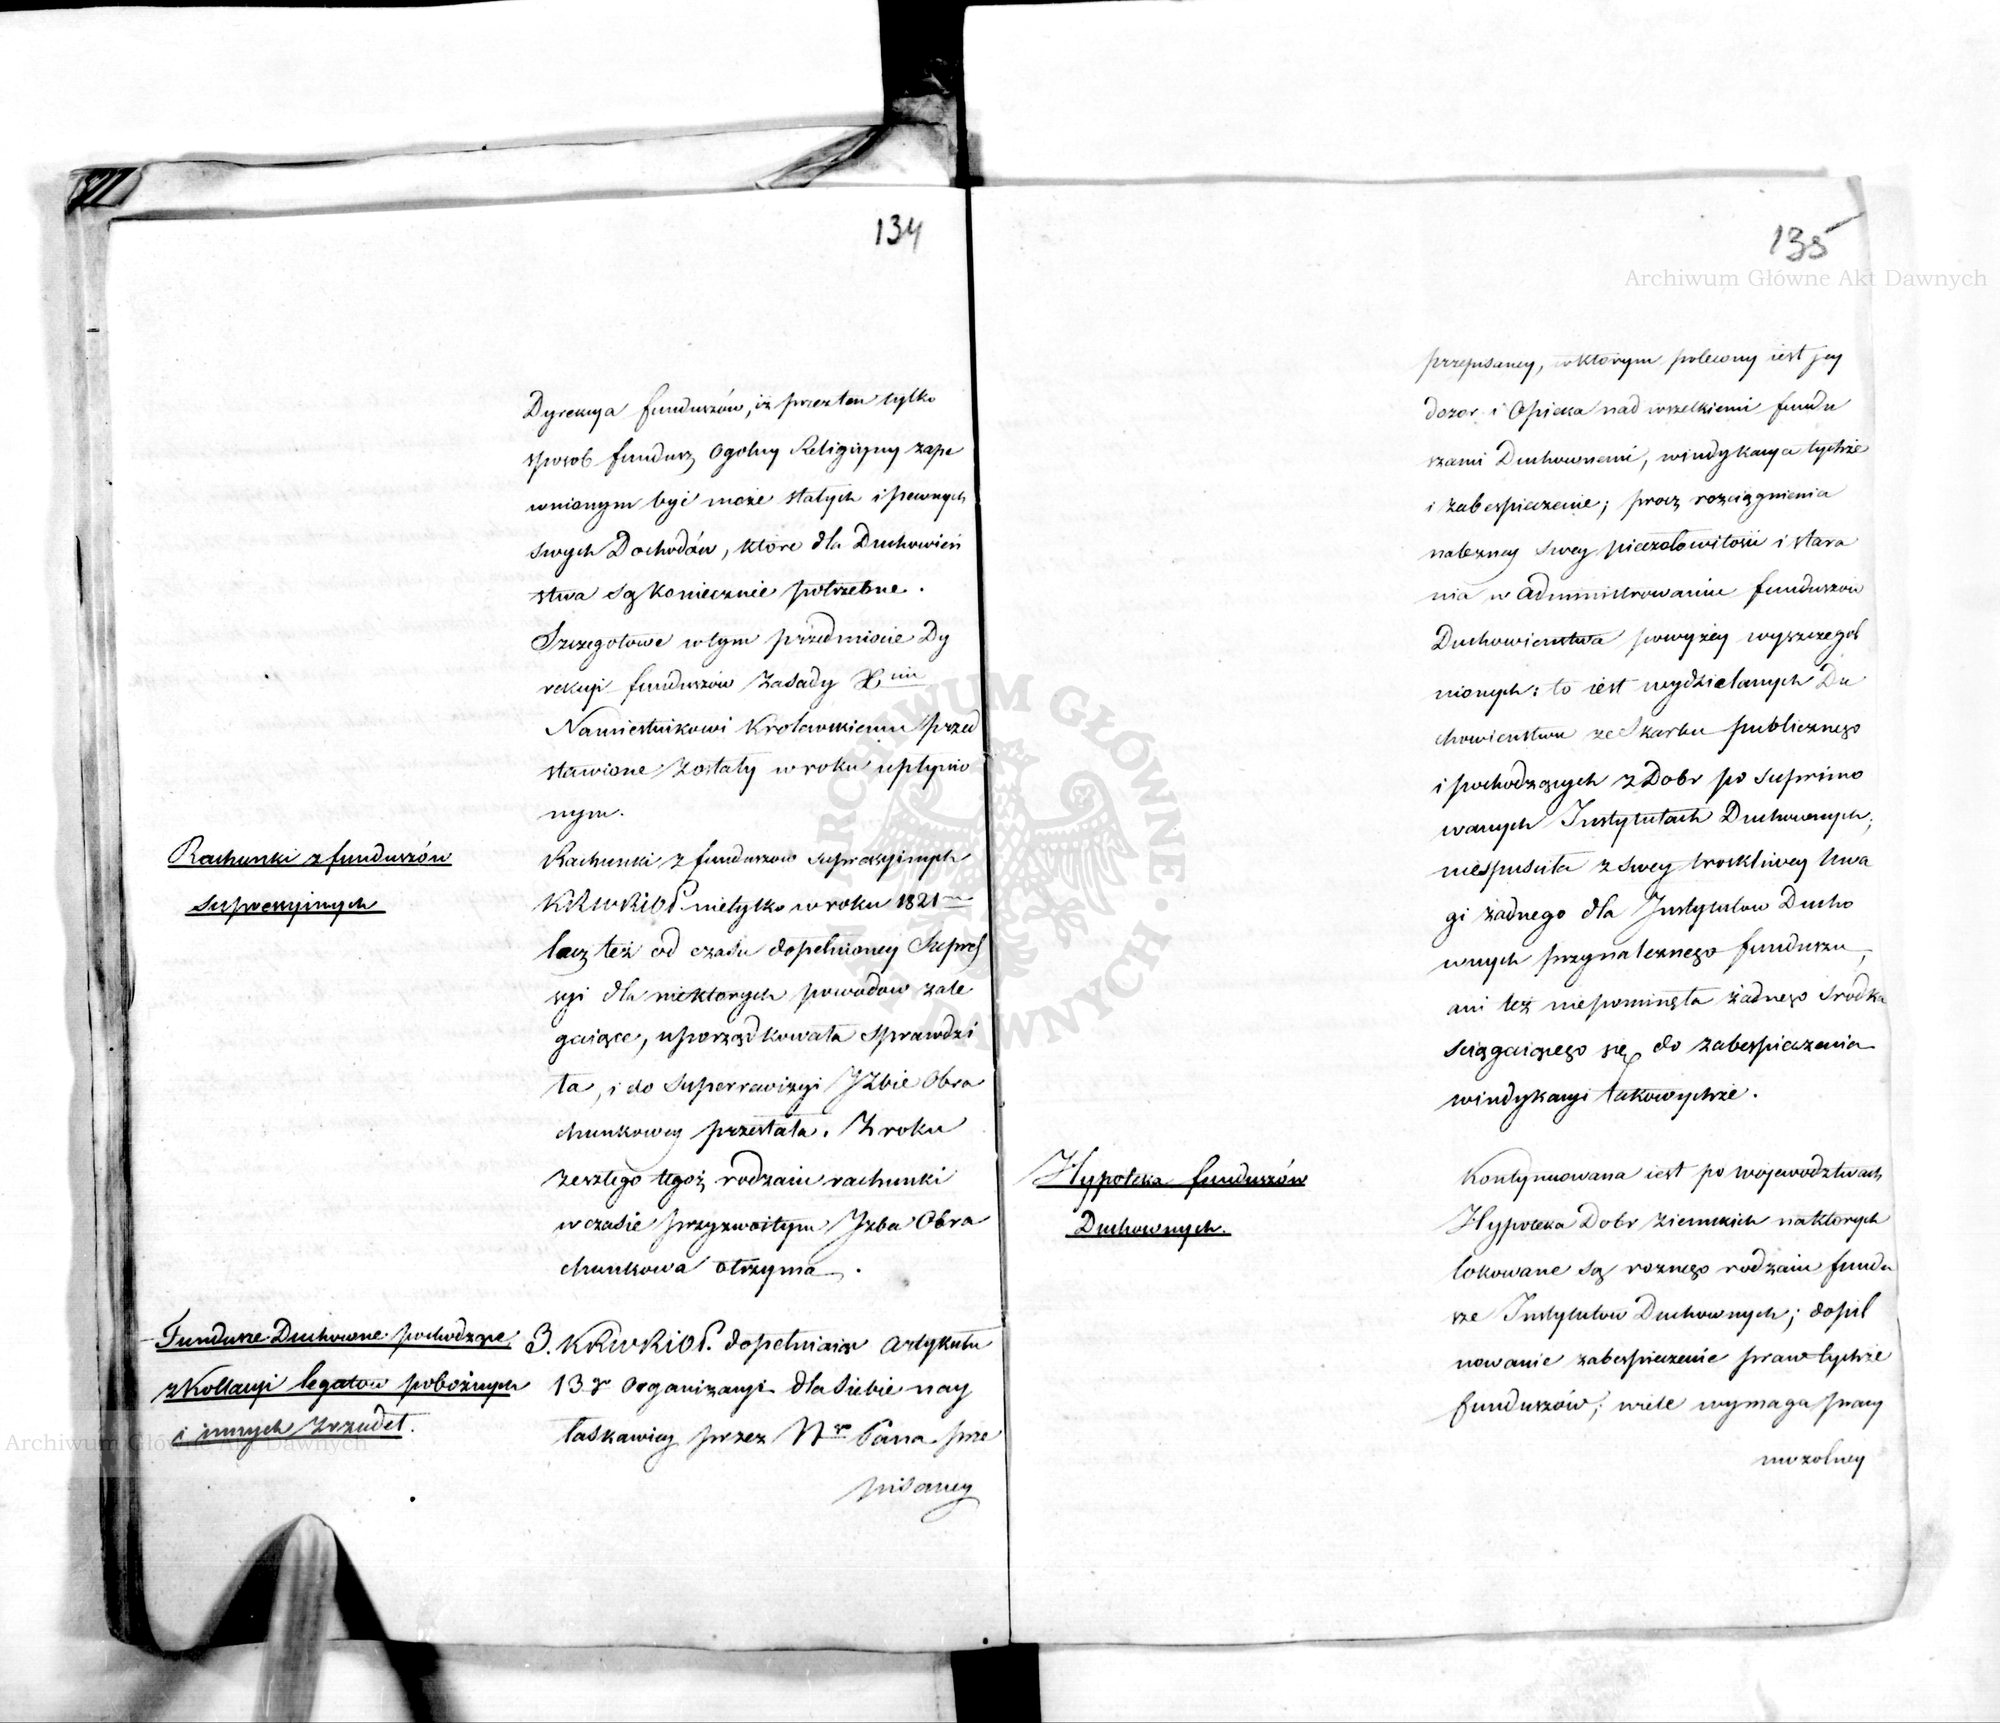 134
Dyrekcya funduszów, iż przez ten tylko
sposob fundusz Ogolny Religijny zape
wnionym być może stałych i pewnych
swych Dochodów, które dla Duchowień
stwa są koniecznie potrzebne.
Szczegołowe w tym przedmiocie Dy
rekcyi funduszów zasady Xciu
Namiestnikowi Krolewskiemu przed
stawione zostały w roku upłynio
nym.
Rachunki z funduszów
Supressyinych
Rachunki z funduszow supressyinych
KRWRiOP. nietylko w roku 1821m
lecz też od czasu dopełnioney Supres
syi dla niektorych powodow zale
gaiące, uporządkowała sprawdzi
ła, i do Superrewizyi Jzbie Obra
chunkowey przesłała. Z roku
zeszłego tegoż rodzaiu rachunki
w czasie przyzwoitym Jzba Obra
chunkowa otrzyma.
Fundusze Duchowne pochodzące
z Kollacyi legatow pobożnych
i innych zrzudeł.
3. KRWRiOP. dopełniaiąc Artykułu
13go Organizacyi dla Siebie nay
łaskawiey przez Ngo Pana prze
pisaney
135
Archiwum Główne Akt Dawnych
przepisaney, w ktorym polecony iest jey
dozor i Opieka nad wszelkiemi fundu
szami Duchownemi, windykacya tychże
i zabespieczenie; procz rozciągnienia
należney swey pieczołowitości i stara
nia w Administrowaniu funduszow
Duchowienstwa powyżey wyszczegol
nionych: to iest wydzielanych Du
chowienstwu ze Skarbu publicznego
i pochodzących z Dobr po suprimo
wanych Jnstytutach Duchownych;
niespuściła z swey troskliwey Uwa
gi żadnego dla Jnstytutow Ducho
wnych przynależnego funduszu,
ani też niepominęła żadnego srodka
sciągaiącego się do zabespieczenia
windykacyi takowychże.
Hypoteka funduszów
Duchownych.
Kontynuowana iest po wojewodztwach
Hypoteka Dobr ziemskich na ktorych
lokowane są roznego rodzaiu fundu
sze Jnstytutow Duchownych; dopil
nowanie zabespieczenie praw tychże
funduszów; wiele wymaga pracy
mozolney
Archiwum Główne Akt Dawnych
ARCHIWUM GŁÓWNE AKT DAWNYCH